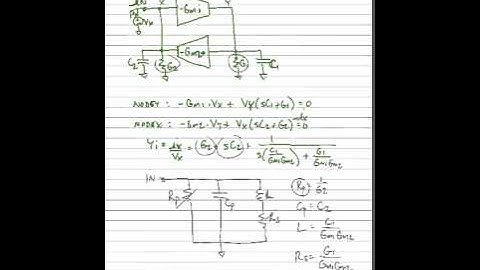 IN X Y
-Gm1
Vx
-Gm2
C2 G2 G1 C1
NODE Y: -Gm1·Vx + Vy(sC1+G1)=0
NODE X: -Gm2·Vy + Vx(sC2+G2)-ix=0
Yi = ix/Vx = G2 + sC2 + 1/(s(C1/Gm1Gm2) + G1/Gm1Gm2)
IN
Rp Cp L
Rs
Rp = 1/G2
Cp = C2
L = C1/Gm1Gm2
Rs = G1/Gm1Gm2